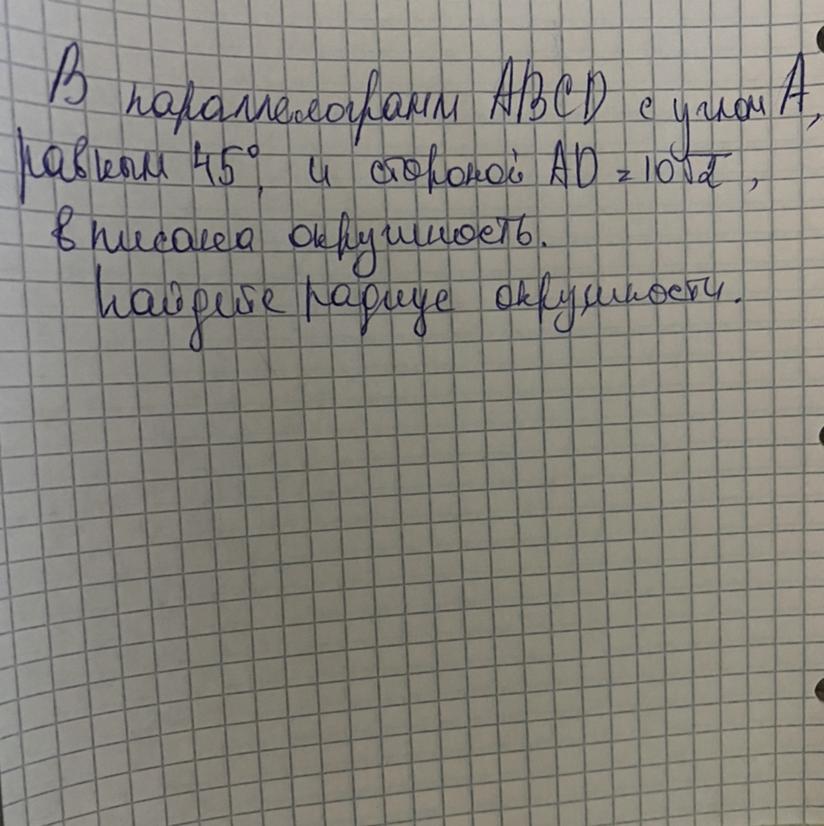 В параллелограмм ABCD с углом A,
равным 45°, и стороной AD = 10√2,
вписана окружность.
Найдите радиус окружности.